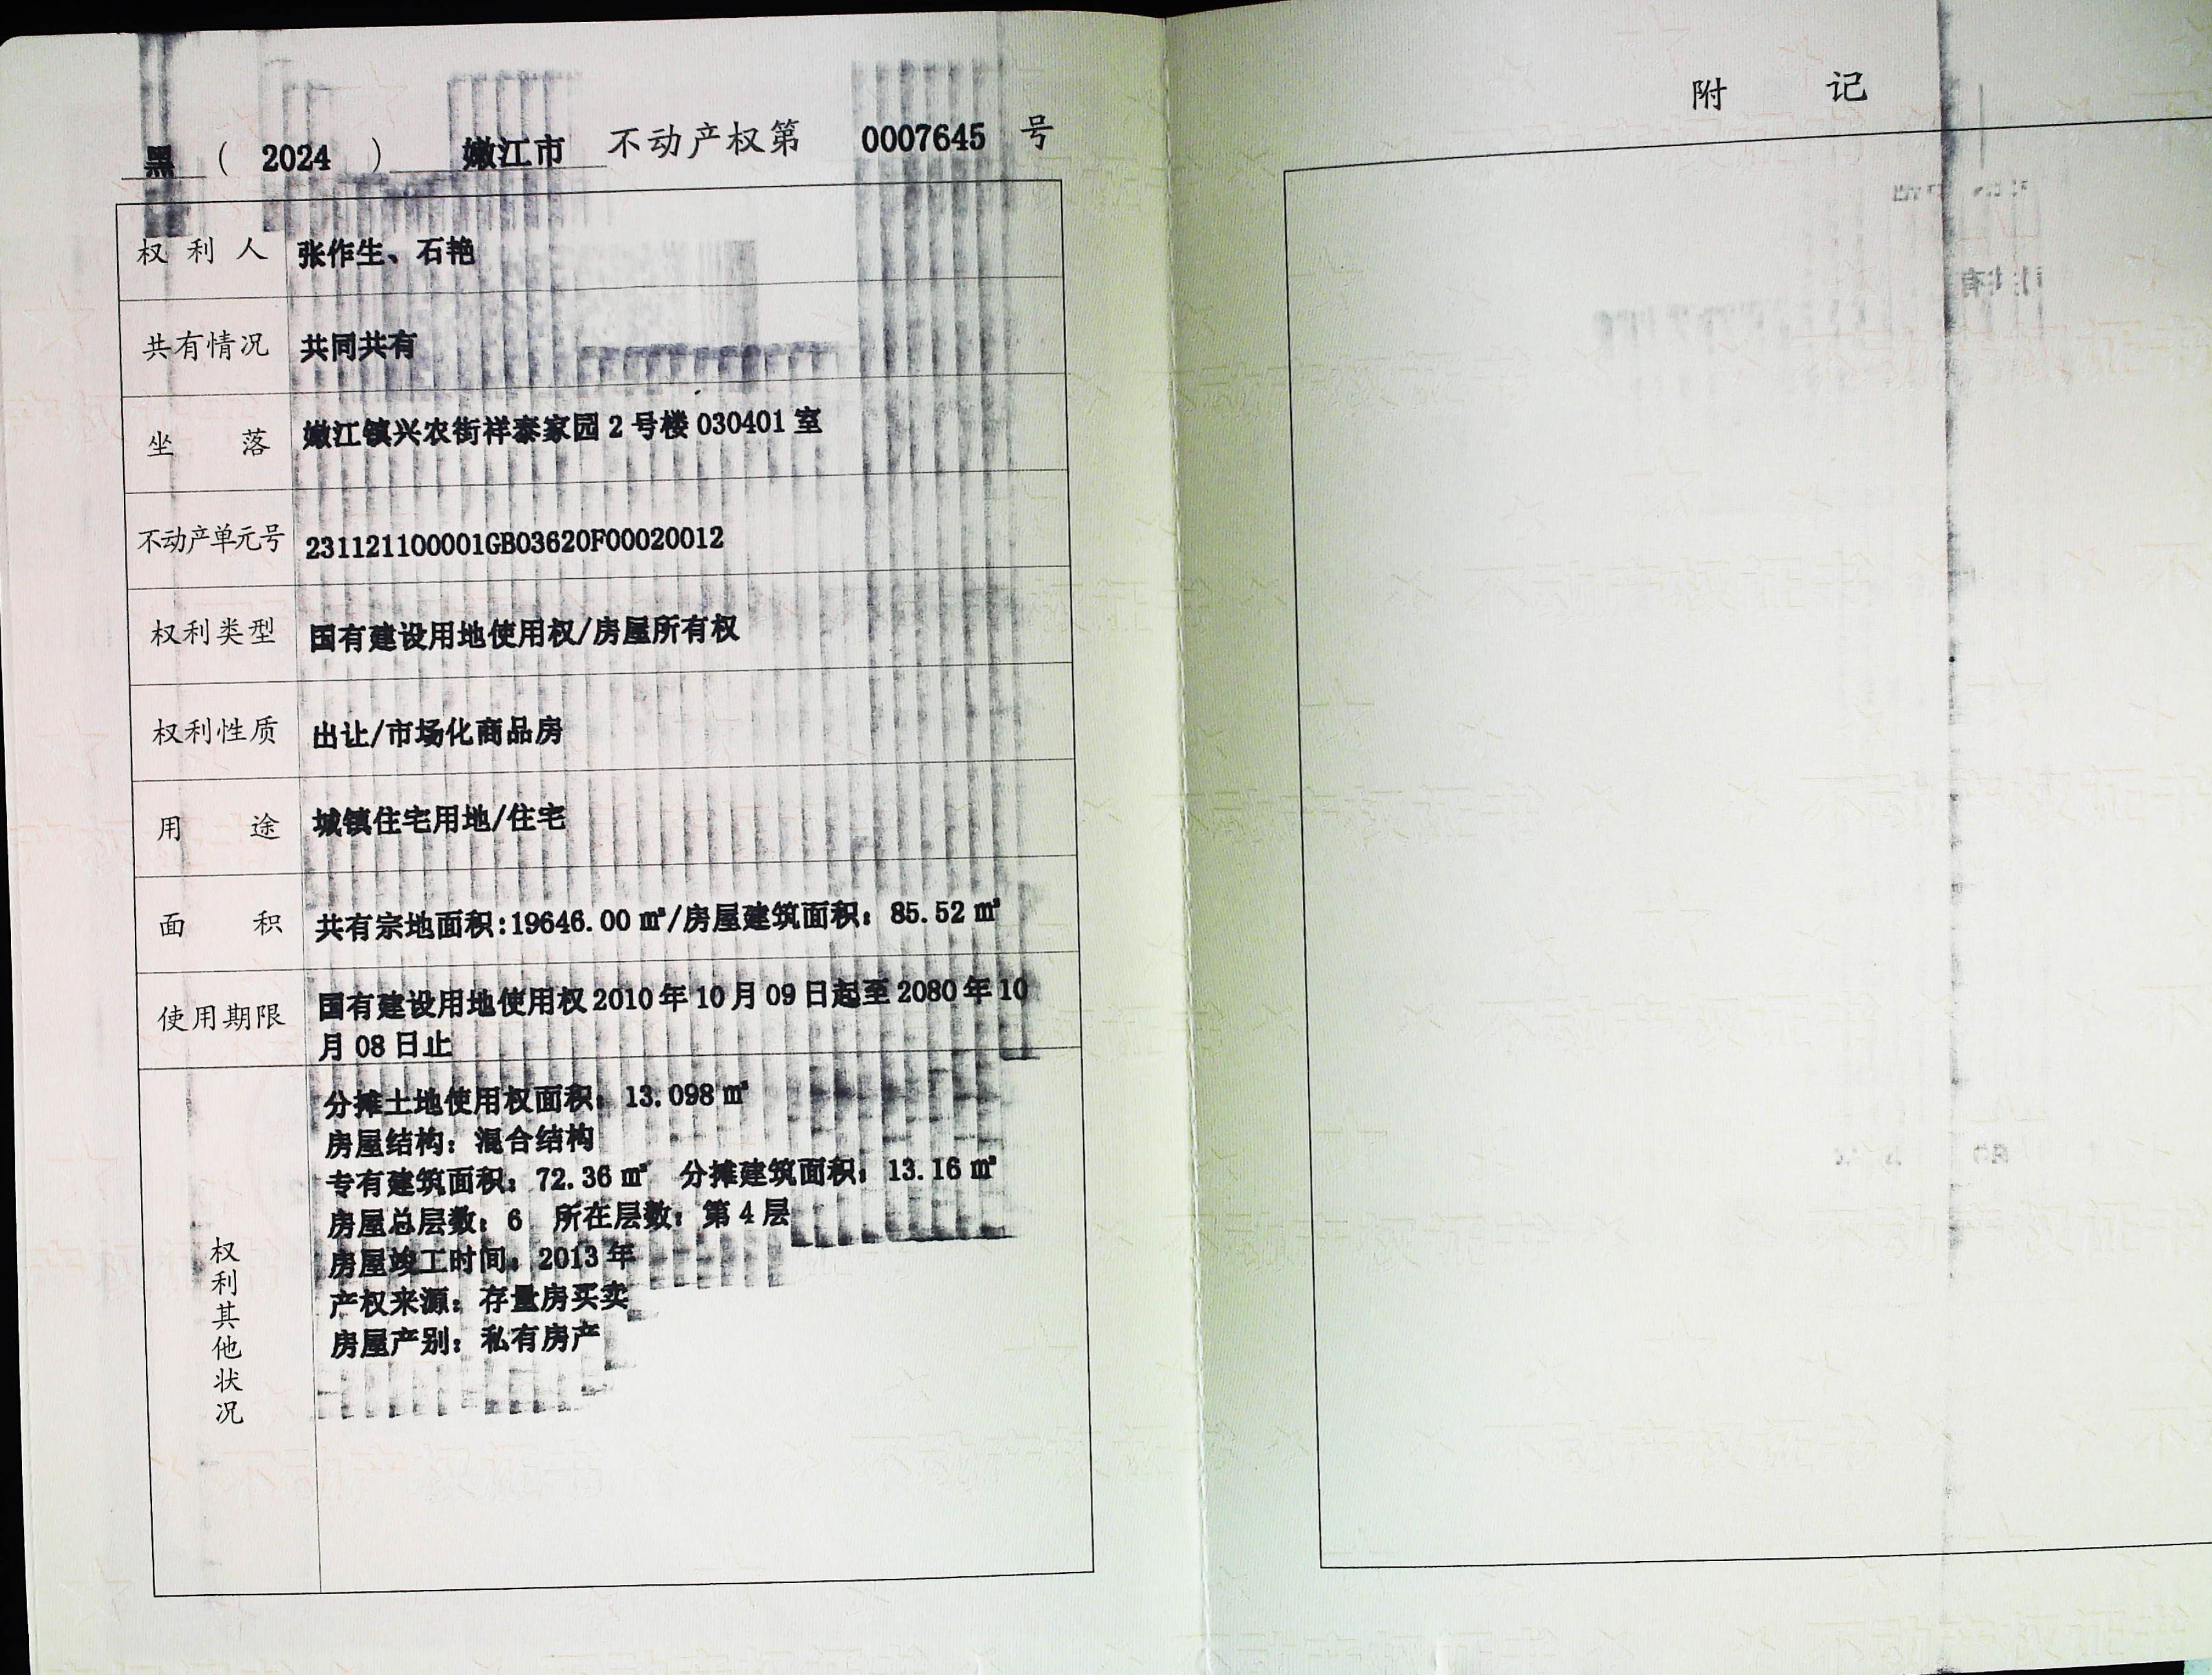 黑 ( 2024 ) 嫩江市 不动产权第 0007645 号
权利人 张作生、石艳
共有情况 共同共有
坐落 嫩江镇兴农街祥泰家园 2 号楼 030401 室
不动产单元号 231121100001GB03620F00020012
权利类型 国有建设用地使用权/房屋所有权
权利性质 出让/市场化商品房
用途 城镇住宅用地/住宅
面积 共有宗地面积:19646.00 ㎡/房屋建筑面积：85.52 ㎡
使用期限 国有建设用地使用权 2010 年 10 月 09 日起至 2080 年 10
月 08 日止
权利其他状况
分摊土地使用权面积：13.098 ㎡
房屋结构：混合结构
专有建筑面积：72.36 ㎡ 分摊建筑面积：13.16 ㎡
房屋总层数：6 所在层数：第 4 层
房屋竣工时间：2013 年
产权来源：存量房买卖
房屋产别：私有房产
附记